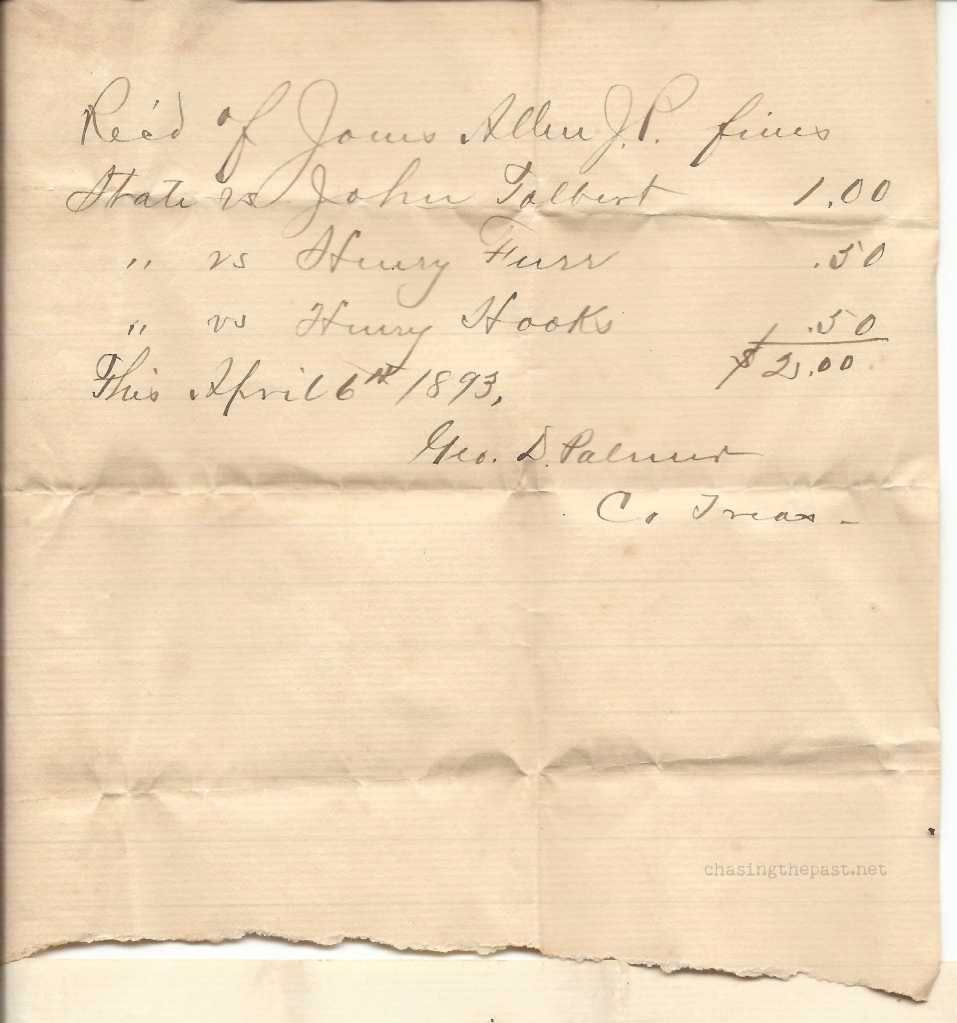 Rec'd of Jonas Allen J.P. fines
State vs John Tolbert 1.00
" vs Henry Furr .50
" vs Henry Hooks .50
$2.00
This April 6th 1893,
Geo. D. Palmer
Co Treas.
chasingthepast.net